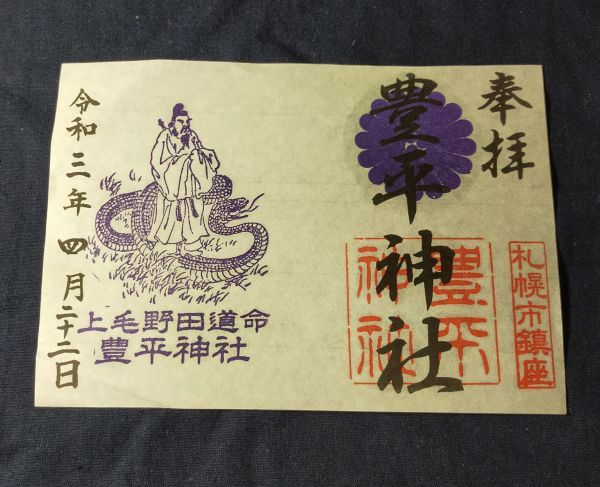 奉拝
豊平神社
豊平神社
札幌市鎮座
上毛野田道命
豊平神社
令和三年四月二十二日